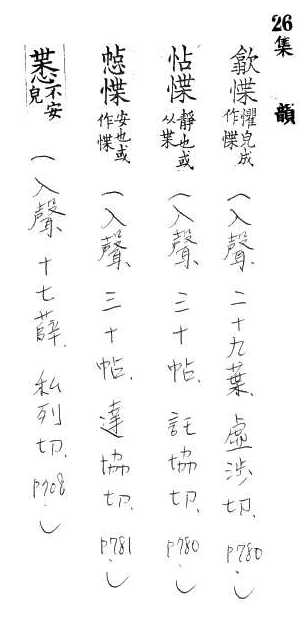 26集 韻
歙慄懼皃或作慄(入聲 二十九葉. 虛涉切. P780.)
怗慄靜也或从葉(入聲 三十帖. 託協切. P780.)
惵安也或作慄(入聲 三十帖. 達協切. P781.)
不安皃(入聲 十七薛. 私列切. P708.)